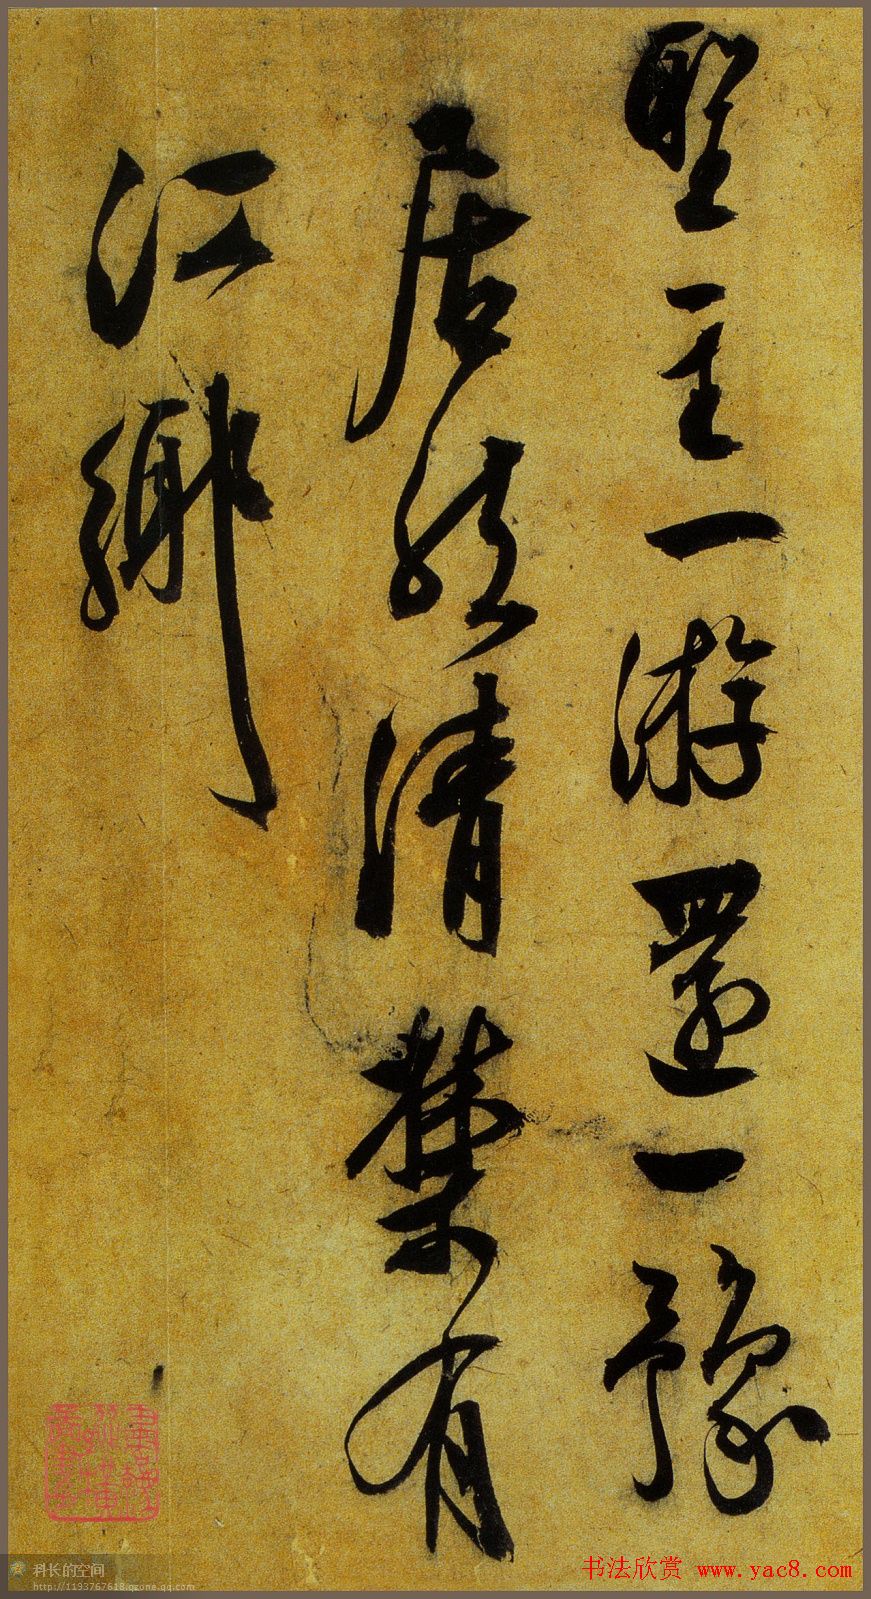 聖主一游還一豫
居然清禁有
江鄉
科长的空间
http://1193767618.qzone.qq.com
书法欣赏 www.yac8.com